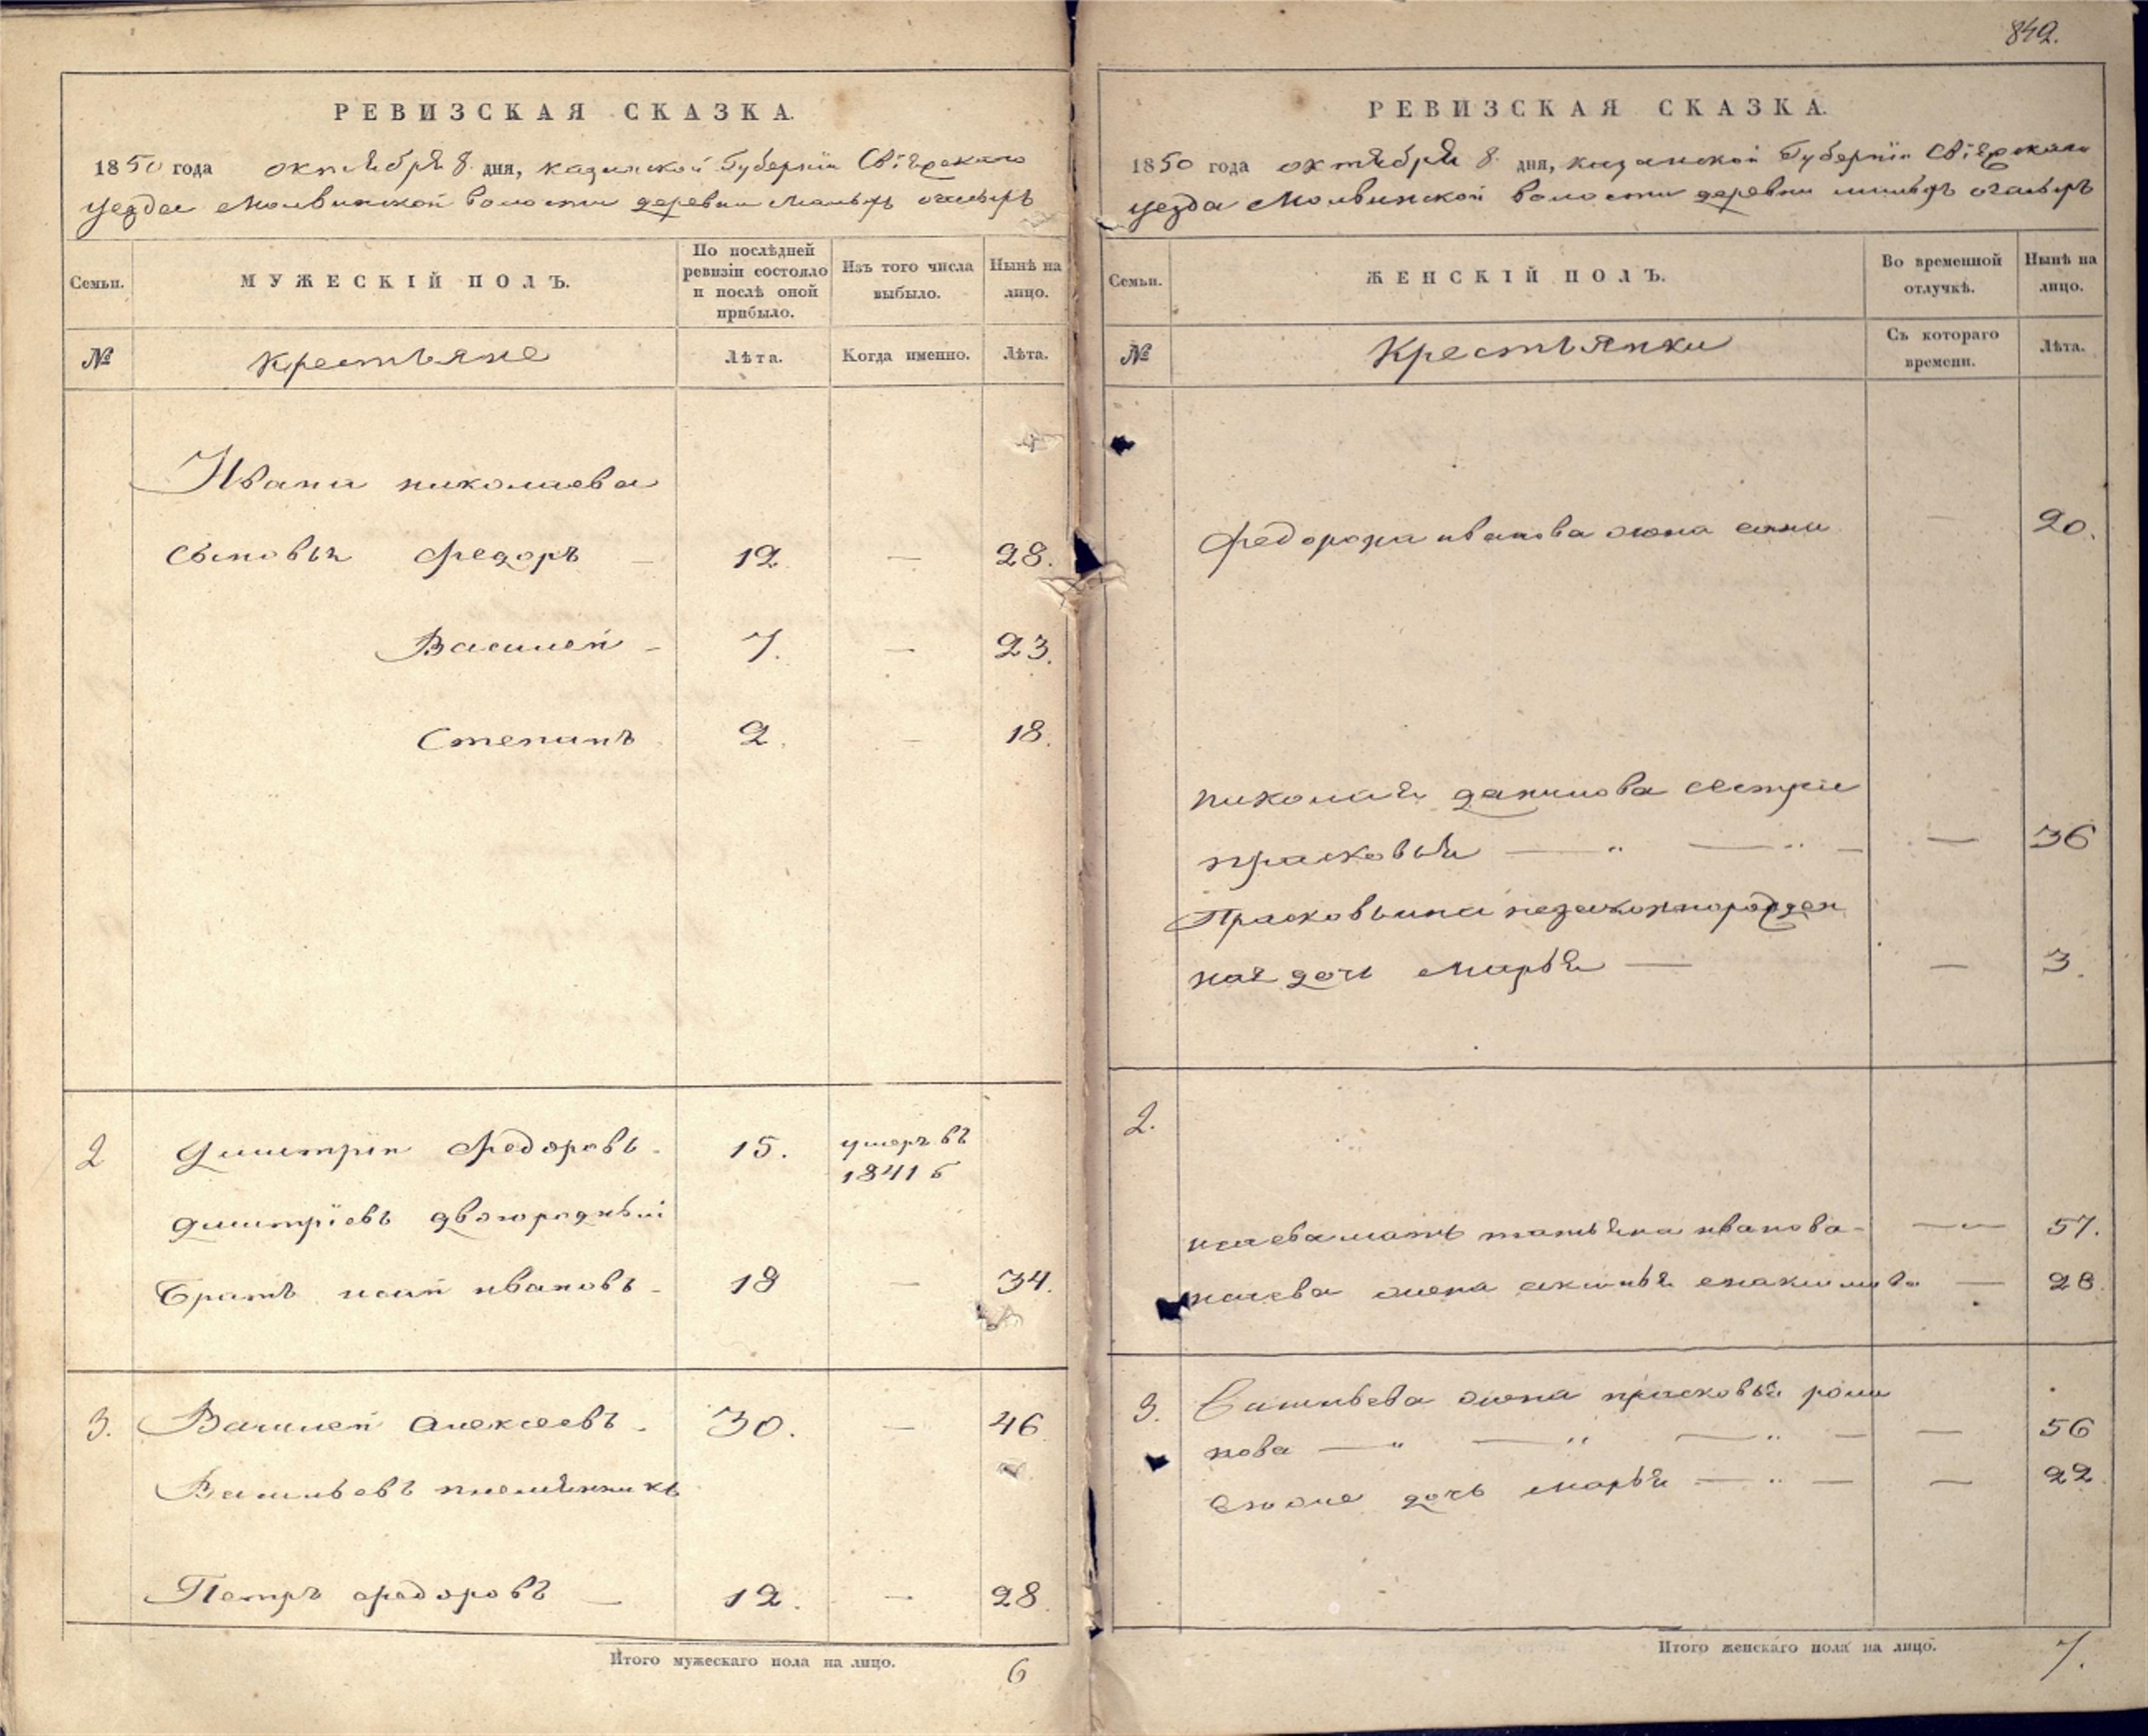 842.
РЕВИЗСКАЯ СКАЗКА.
1850 года октября 8 дня, казанской Губернїи Свіяжскаго
уезда Молвинской волости деревни Малыхъ
Семьи.
МУЖЕСКІЙ ПОЛЪ.
По послѣдней ревизіи состояло и послѣ оной прибыло.
Изъ того числа выбыло.
Нынѣ на лицо.
№
Крестьяне
Лѣта.
Когда именно.
Лѣта.
Ивана николаева
сыновьи Федоръ — 12 — 28.
Василей - 7. — 23.
Степанъ 2. — 18.
2 Дмитрїи Федоровъ - 15. умеръ въ
1841 г
дмитрїевъ двоюродный
братъ исай ивановъ - 18 — 34.
3. Василей алексеевъ - 30. — 46
Васильевъ племянникъ
Петръ федоровъ — 12. — 28
Итого мужескаго пола на лицо. 6
РЕВИЗСКАЯ СКАЗКА.
1850 года октября 8 дня, казанской Губернїи Свіяжскаго
уезда Молвинской волости деревни малыхъ
Семьи.
ЖЕНСКІЙ ПОЛЪ.
Во временной отлучкѣ.
Нынѣ на лицо.
№
Крестьянки
Съ котораго времени.
Лѣта.
иванова жена — 20.
николая данилова сестра
прасковья — „ — „ — — 36
Прасковьина незаконнорожден
ная дочь марья — — 3.
2.
исаева мать татьяна иванова - — 57.
исаева жена — 28.
3. Васильева жена прасковья рома
нова — „ — „ — „ — — 56
дочь марья — „ — — 22
Итого женскаго пола на лицо. 7.